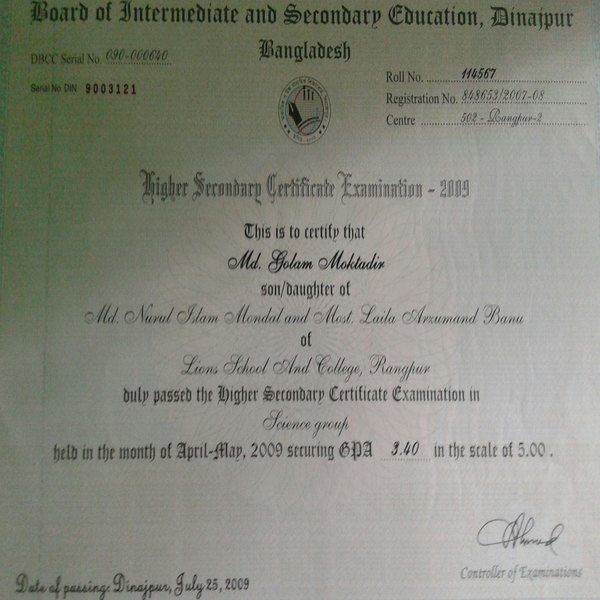 Board of Intermediate and Secondary Education, Dinajpur
Bangladesh
DBCC Serial No. 090-000640
Serial No DIN 9003121
Roll No. 114567
Registration No. 848653/2007-08
Centre 502 - Rangpur-2
Higher Secondary Certificate Examination - 2009
This is to certify that
Md. Golam Moktadir
son/daughter of
Md. Nurul Islam Mondal and Most. Laila Arzumand Banu
of
Lions School And College, Rangpur
duly passed the Higher Secondary Certificate Examination in
Science group
held in the month of April-May, 2009 securing GPA 3.40 in the scale of 5.00 .
Controller of Examinations
Date of passing: Dinajpur, July 25, 2009